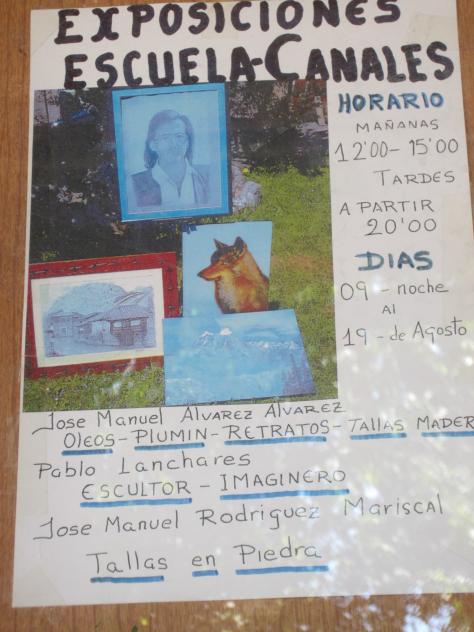 EXPOSICIONES
ESCUELA-CANALES
HORARIO
MAÑANAS
12'00-15'00
TARDES
A PARTIR
20'00
DIAS
09-noche
AL
19-de Agosto
Jose Manuel Alvarez Alvarez
OLEOS-PLUMIN-RETRATOS-TALLAS MADER
Pablo Lanchares
ESCULTOR - IMAGINERO
Jose Manuel Rodriguez Mariscal
Tallas en Piedra